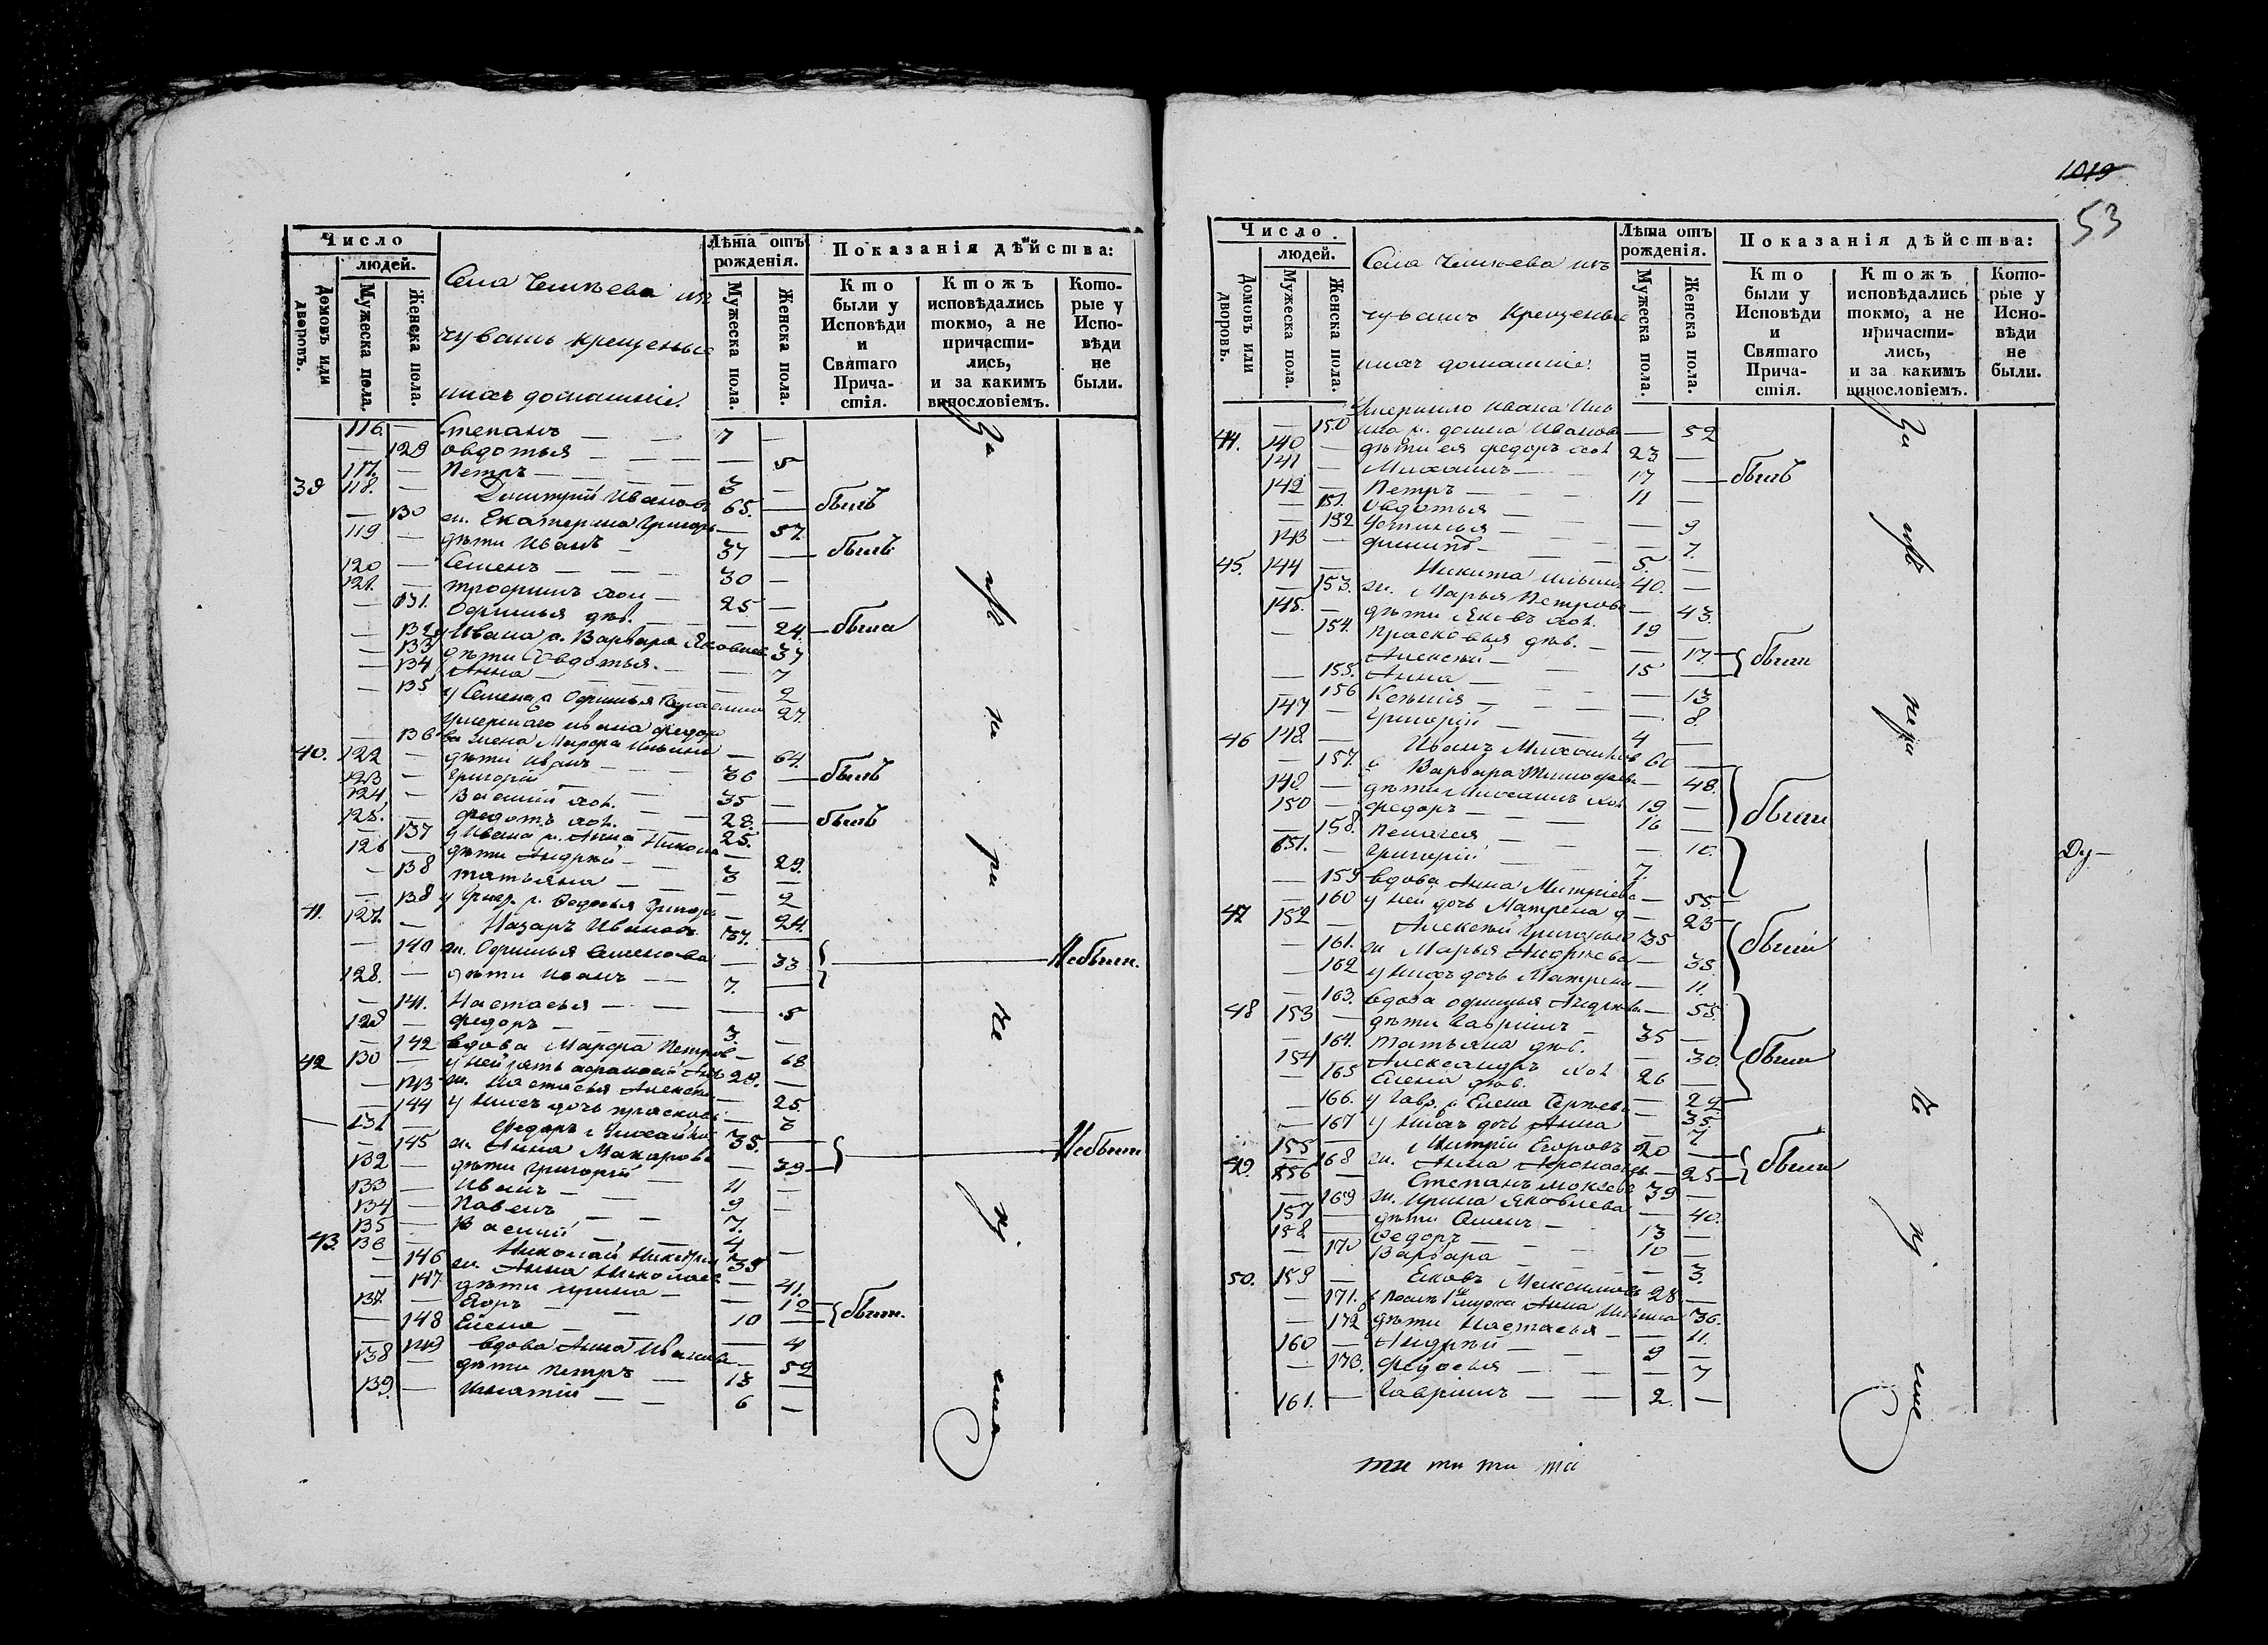 Число
людей.
Домовъ или дворовъ.
Мужеска пола.
Женска пола.
Села Чешкева изъ
чувашъ крещеные
ихъ домашніе.
Лѣта отъ рожденія.
Мужеска пола.
Женска пола.
Показанія дѣйства:
Кто были у Исповѣди и Святаго Прича-стія.
Ктожъ исповѣдались токмо, а не причасти-лись, и за какимъ винословіемъ.
Кото-рые у Испо-вѣди не были.
116. — Степанъ — 7 —
— 129 Овдотья — — 5
117. — Петръ — 3 —
39 118. — Дмитрий Ивановъ 65. — былъ
— 130 ж. Екатерина Григорь — 57.
119 — дѣти Иванъ — 37 — былъ
120 — Семенъ — 30 —
121. — Трофимъ хол — 25 —
— 131. Офимья дѣв. — 24. была
— 132 у Ивана ж. Варвара Яковлев. 37
— 133 дѣти Овдотья. — 7
— 134 Анна — 2
— 135 у Семена ж Офимья 27.
Умершаго Ивана Федоро
— 136 ва жена Марфа Ильина — 64.
40. 122 — дѣти Иванъ — 36 — былъ
123 — Григорій — 35 —
124 — Василій хол. — 28. — былъ
125. — Федотъ хол. — 25.
— 137 у Ивана ж. Анна Никола — 29.
126 — дѣти Андрѣй — 3 —
— 138 Татьяна — — 2
— 138 у Григ. ж. Федосья Григорь — 24.
41. 127. — Назаръ Ивановъ 37. —
— 140 ж. Офимья Семенова — 33 Небыли.
128. — дѣти Иванъ — 7. —
— 141. Настасья — — 5
128 — Федоръ — 3. —
— 142 вдова Марфа Петров — 68
42 130 — у ней зять Афанасей 29. —
— 143 ж. Настасья Алексѣе — 25.
— 144 у нихъ дочь Прасковь — 3
131 — Федоръ Михайло 35. —
— 145 ж. Анна Макарова — 39 Небыли
132 — дѣти Григорій — 11 —
133 — Иванъ — 9 —
134 — Павелъ — 7. —
135 — Василий — 4 —
43. 136 — Николай Никитин 39
— 146 ж. Анна Николаев — 41.
— 147. дѣти Ирина — 12
137. — Егоръ — 10 — были.
— 148 Елена — — 4
— 149 вдова Анна Иванова — 52
138 — дѣти Петръ — 13 —
139. — Игнатій — 6 —
За не при че нї емъ
1019
53
Число.
людей.
Домовъ или дворовъ.
Мужеска пола.
Женска пола.
Села Чешкева изъ
чувашъ крещеные
ихъ домашніе.
Лѣта отъ рожденія.
Мужеска пола.
Женска пола.
Показанія дѣйства:
Кто были у Исповѣди и Святаго Прича-стія.
Ктожъ исповѣдались токмо, а не причасти-лись, и за какимъ винословіемъ.
Кото-рые у Испо-вѣди не были.
Умершаго Ивана Иль
— 150 ина ж. Домна Иванов — 52
44. 140 — дѣти ея Федоръ хол 23 —
141 — Михаилъ — 17 — былъ
142 — Петръ — 11 —
— 151. Овдотья — — 9
— 152 Устинья — — 7.
143 — Филипъ — 5. —
45. 144 — Никита Ильинъ 40. —
— 153. ж. Марья Петрова — 43.
145. — дѣти Яковъ хол. 19 —
— 154. Прасковья дѣв. — 17. были
Алексѣй — 15 —
— 155. Анна — — 13
— 156 Ксенія — — 8.
147 — Григорій — 4 —
46 148 — Иванъ Михайловъ 60 —
— 157. ж Варвара Тимофеева — 48.
149. — дѣти Михаилъ хол 19 — были
150 — Федоръ — 16 —
— 158. Пелагея — — 10.
151. — Григорій — 7.
— 159 вдова Анна Митріева — 55.
— 160 у ней дочь Матрена д — 23
47 152 — Алексѣй Григорьев 35 были
— 161. ж Марья Андрѣева — 35.
— 162 у нихъ дочь Матрена — 11.
— 163. вдова Офимья Андрѣева — 55.
48 153 — дѣти Гаврилъ — 35 —
— 164. Татьяна дѣв. — 30. были
154 — Александръ хол 26 —
— 165 Елена дѣв. — 22
— 166. у Гавр. ж Елена Сергѣев — 35.
— 167 у нихъ дочь Анна — 7
155 — Митрій Егоровъ 20 — были
— 168 ж. Анна Афонась — 25
49. 156 — Степанъ Мокѣев 39 —
— 169 ж. Ирина Яковлева — 40.
157 — дѣти Семенъ — 13 —
158 — Федоръ — 10 —
— 170 Варвара — — 3.
50. 159 — Яковъ Максимовъ 28 —
— 171. Анна Ильина 36.
— 172 дѣти Настасья — 11.
160 — Андрѣй — 9 —
— 173. Федосья — — 7
161. — Гаврилъ — 2. —
Ду-
ти ти ти та